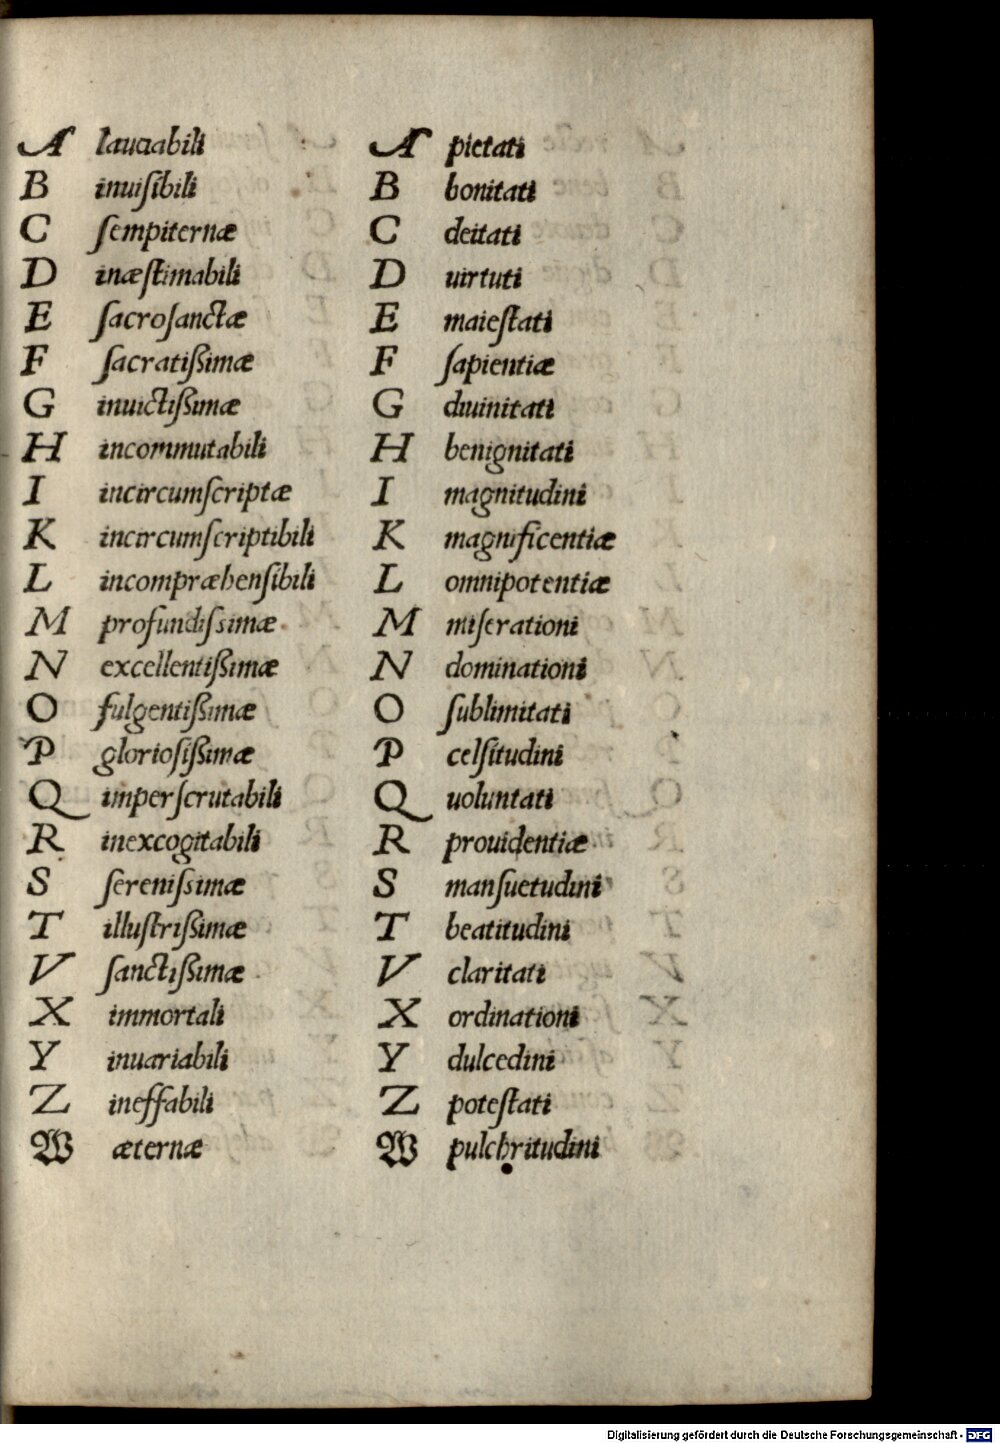 A laudabili A pietati
B inuiſibili B bonitati
C ſempiternæ C deitati
D inæſtimabili D uirtuti
E ſacroſanctæ E maieſtati
F ſacratißimæ F ſapientiæ
G inuictißimæ G diuinitati
H incommutabili H benignitati
I incircumſcriptæ I magnitudini
K incircumſcriptibili K magnificentiæ
L incompræhenſibili L omnipotentiæ
M profundiſsimæ M miſerationi
N excellentißimæ N dominationi
O fulgentißimæ O ſublimitati
P glorioſißimæ P celſitudini
Q imperſcrutabili Q uoluntati
R inexcogitabili R prouidentiæ
S ſereniſsimæ S manſuetudini
T illuſtrißimæ T beatitudini
V ſanctißimæ V claritati
X immortali X ordinationi
Y inuariabili Y dulcedini
Z ineffabili Z poteſtati
W æternæ W pulchritudini
Digitalisierung gefördert durch die Deutsche Forschungsgemeinschaft - DFG